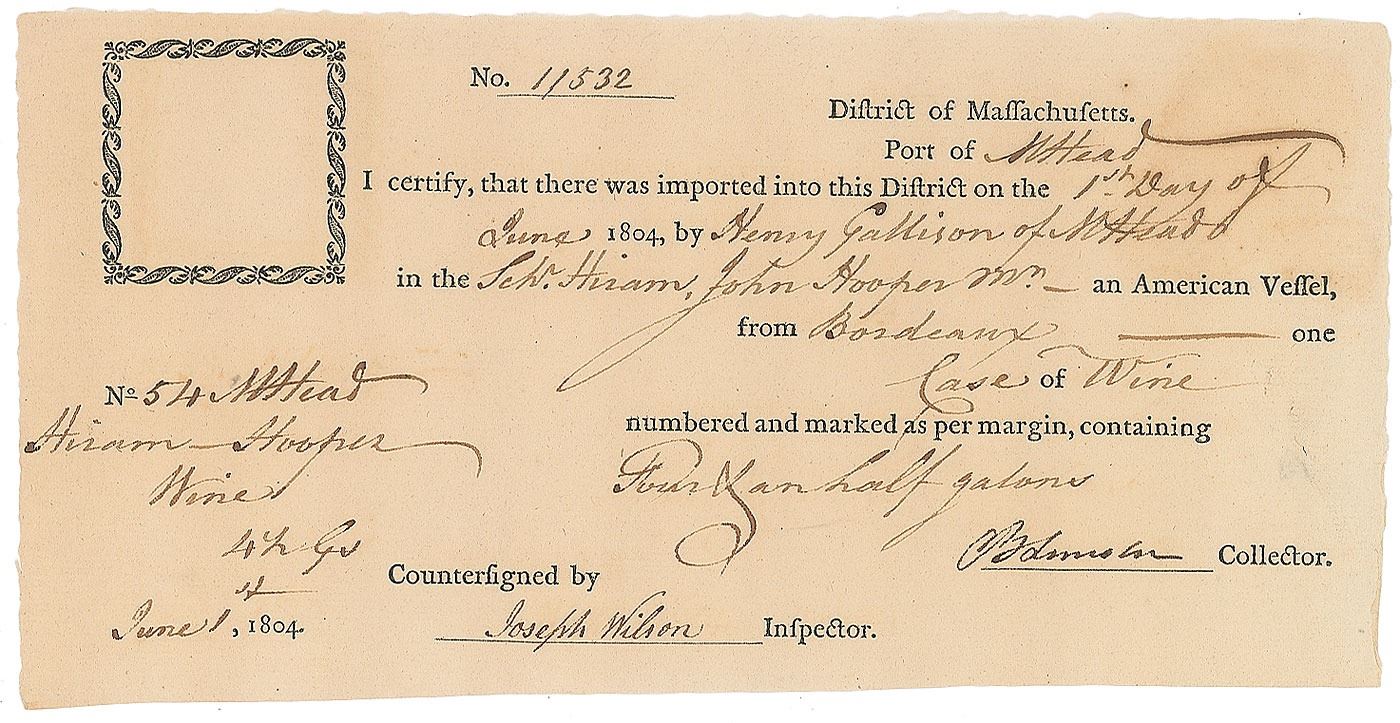 No. 11532
Diſtrict of Maſſachuſetts.
Port of MHead
I certify, that there was imported into this Diſtrict on the 1st Day of
June 1804, by Henry Gallison of MHead
in the Schr. Hiram, John Hooper Mr an American Veſſel,
from Bordeaux — one
Case of Wine
numbered and marked as per margin, containing
Four & an half galons
Collector.
Counterſigned by
Joseph Wilson Inſpector.
No 54 MHead
Hiram - Hooper
Wine
4½ Gs
June 1st, 1804.